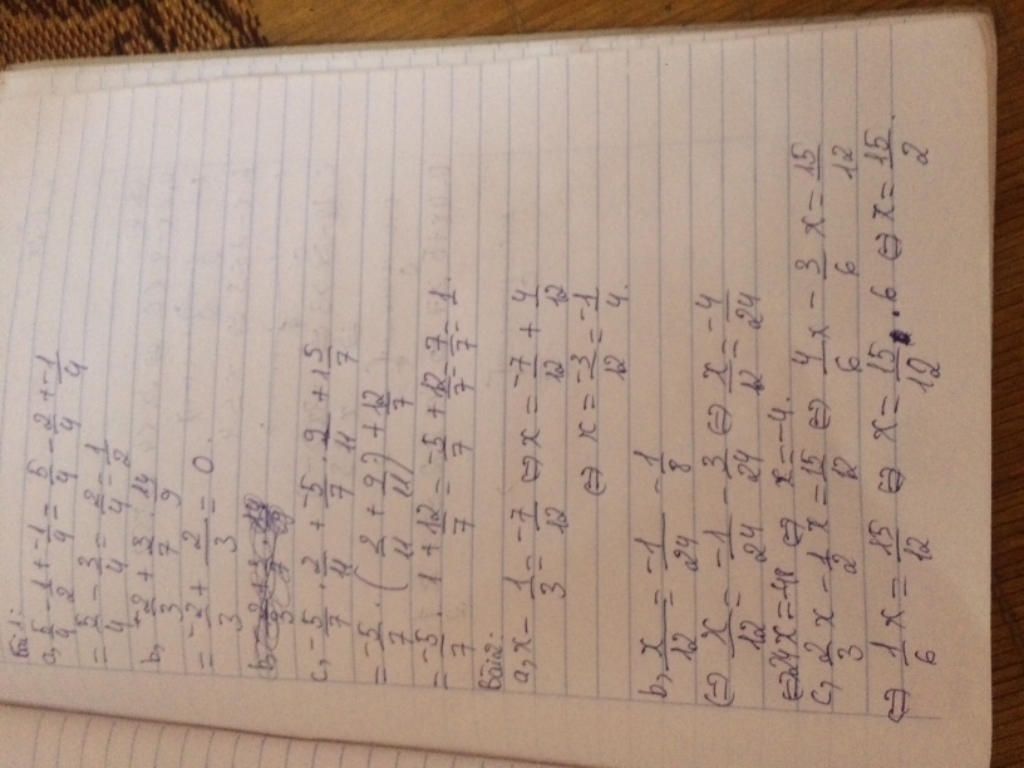 Bài 1:
a, 5/4 - 1/2 + -1/4 = 5/4 - 2/4 + -1/4
= 5/4 - 3/4 = 2/4 = 1/2
b, -2/3 + 3/7 . 14/9
= -2/3 + 2/3 = 0.
c, -5/7 . 2/11 + -5/7 . 9/11 + 15/7
= -5/7 . (2/11 + 9/11) + 12/7
= -5/7 . 1 + 12/7 = -5/7 + 12/7 = 7/7 = 1.
Bài 2:
a, x - 1/3 = -7/12 ⇔ x = -7/12 + 4/12
⇔ x = -3/12 = -1/4.
b, x/12 = -1/24 - 1/8
⇔ x/12 = -1/24 - 3/24 ⇔ x/12 = -4/24
⇔ 24x = -48 ⇔ x = -4.
c, 2/3 x - 1/2 x = 15/12 ⇔ 4/6 x - 3/6 x = 15/12
⇔ 1/6 x = 15/12 ⇔ x = 15/12 . 6 ⇔ x = 15/2.